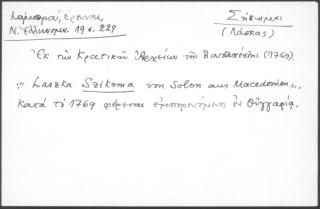 Λάμπρου, Σ
Ν. Ἑλληνομν. 19 σ. 229
Σήκωμαι
(Λάσκας)
Ἐκ τῶν Κρατικῶν Ἀρχείων τῆς Βουδαπέστης (1769).
"Laszka Szikoma von Solon aus Macedonien",
κατὰ τὸ 1769 φέρεται ἐμπορευόμενος ἐν Οὑγγαρίᾳ.